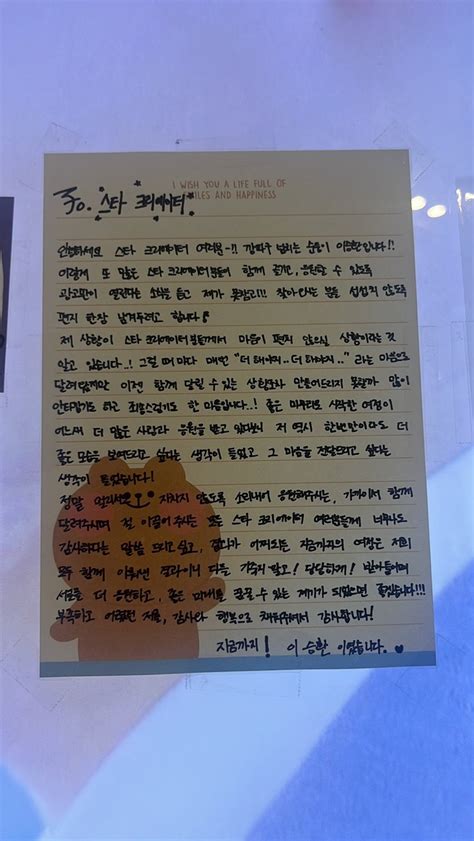 I WISH YOU A LIFE FULL OF
SMILES AND HAPPINESS
To. 스타 크리에이터
안녕하세요 스타 크리에이터 여러분~!! 깡따구 넘치는 이승환입니다!!
이렇게 또 많은 스타 크리에이터분들이 함께 즐기고, 응원할 수 있도록
광고판이 열린다는 소식을 듣고 제가 못참고!!! 찾아오시는 분들 섭섭치 않도록
편지 한장 남겨두려고 합니다♪
제 상황이 스타 크리에이터분들께서 마음이 편치 않으실 상황이라는 것
알고 있습니다..! 그럴 때마다 매번 "더 해야지.. 더 해야지.." 라는 마음으로
달려왔지만 이젠 함께 달릴 수 있는 상황조차 만들어드리지 못할까 많이
안타깝기도 하고 죄송스럽기도 한 마음입니다..! 좋은 마무리로 시작한 여정이
어느새 더 많은 사람과 응원을 받고 있다보니 저 역시 한번만이라도 더
좋은 모습을 보여드리고 싶다는 생각이 들었고 그 마음을 전달드리고 싶다는
생각이 들었습니다!
정말 멀리서도 지치지 않도록 소리내어 응원해주시는, 가까이서 함께
달려주시며 절 이끌어 주시는 모든 스타 크리에이터 여러분들께 너무나도
감사하다는 말씀 드리고 싶고, 결과가 어찌되든 지금까지의 여정은 저희
모두 함께 이뤄낸 결과이니 다들 기죽지 말고! 당당하게! 받아들이며
서로를 더 응원하고, 좋은 미래로 만들 수 있는 계기가 되었으면 좋겠습니다!!!
부족하고 어렸던 저를, 감사와 행복으로 채워주셔서 감사합니다!
지금까지! 이승환 이었습니다. ♥